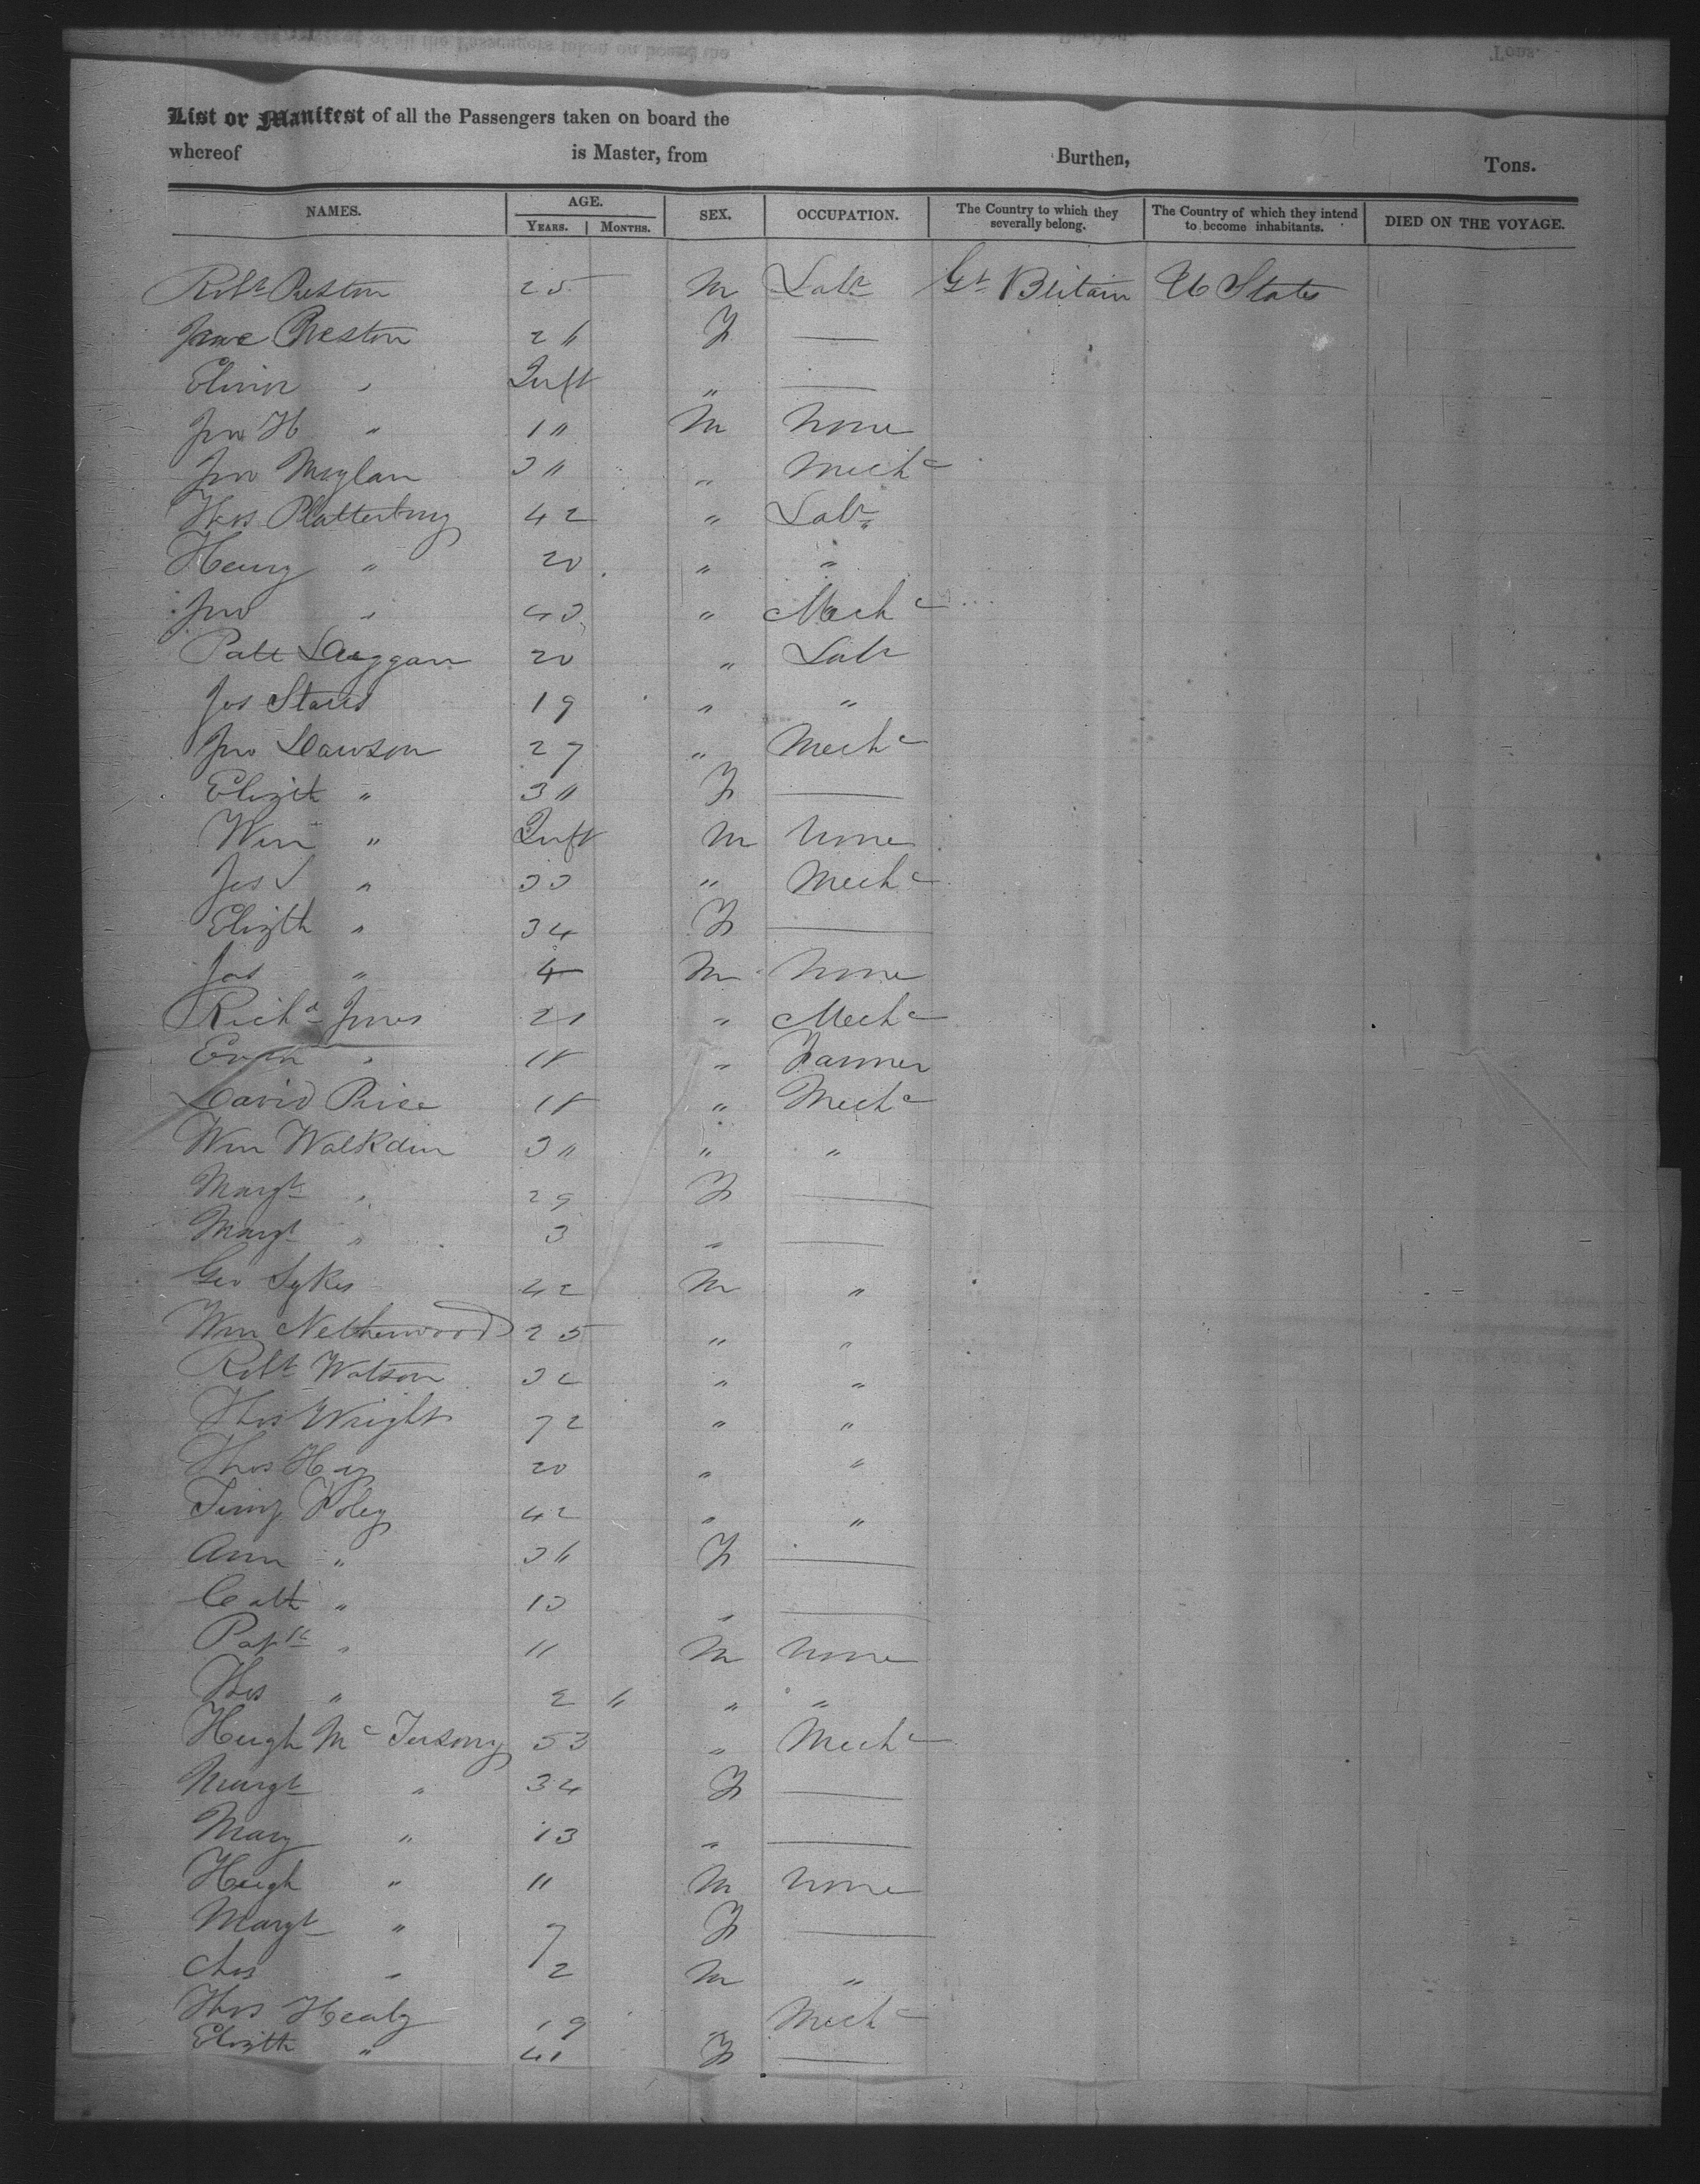 List or Manifest of all the Passengers taken on board the
whereof is Master, from Burthen, Tons.
NAMES. AGE. YEARS. MONTHS. SEX. OCCUPATION. The Country to which they severally belong. The Country of which they intend to become inhabitants. DIED ON THE VOYAGE.
Robt Preston 25 M Labr Gt Britain U States
Jane Preston 26 F —
Elinor " Inft " —
Jno H " 1 " M None
Jno Moylan 3 " " Mechc
Thos Platterbury 42 " Labr
Henry " 20 " "
Jno " 43 " Mechc
Patt Duggan 20 " Labr
Jos 19 " "
Jno Dawson 27 " Mechc
Elizth " 3 " F —
Wm " Inft M None
Jos " 33 " Mechc
Elizth " 34 F —
Jas " 4 M None
Richd Jones 21 " Mechc
Evan " 18 " Farmer
David Price 18 " Mechc
Wm Walkden 3 " " "
Margt " 29 F —
Margt " 3 " —
Geo Sykes 42 M "
Wm Netherwood 25 " "
Robt Watson 32 " "
Thos Wright 72 " "
Thos Hay 20 " "
Timy Foley 42 " "
Ann " 36 F —
Cath " 13 " —
Patk " 11 M None
Thos " 2 " " "
Hugh Mc 53 " Mechc
Margt " 34 F —
Mary " 13 " —
Hugh " 11 M None
Margt " 7 F —
Chas " 2 M "
Thos Healy 19 " Mechc
Elizth " 41 F —